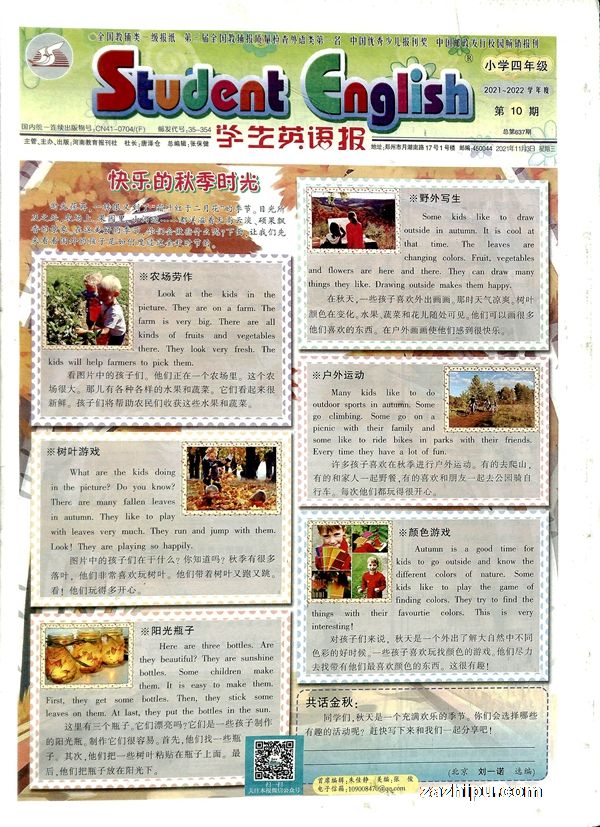 全国教辅类一级报纸 第一届全国教辅报质量检查外语类第一名 中国优秀少儿报刊奖 中国邮政发行校园畅销报刊
Student English®
小学四年级
2021~2022 学年度
第 10 期
国内统一连续出版物号:CN41-0704/(F) 邮发代号:35-354
学生英语报
总第637期
主管、主办、出版:河南教育报刊社 社长:唐泽仓 总编辑:张保健
地址:郑州市月湖南路17号1号楼 邮编:450044 2021年11月3日 星期三
快乐的秋季时光
※农场劳作
Look at the kids in the
picture. They are on a farm. The
farm is very big. There are all
kinds of fruits and vegetables
there. They look very fresh. The
kids will help farmers to pick them.
看图片中的孩子们,他们正在一个农场里。这个农
场很大。那儿有各种各样的水果和蔬菜。它们看起来很
新鲜。孩子们将帮助农民们收获这些水果和蔬菜。
※树叶游戏
What are the kids doing
in the picture? Do you know?
There are many fallen leaves
in autumn. They like to play
with leaves very much. They run and jump with them.
Look! They are playing so happily.
图片中的孩子们在干什么?你知道吗?秋季有很多
落叶,他们非常喜欢玩树叶。他们带着树叶又跑又跳。
看!他们玩得多开心。
※阳光瓶子
Here are three bottles. Are
they beautiful? They are sunshine
bottles. Some children make
them. It is easy to make them.
First, they get some bottles. Then, they stick some
leaves on them. At last, they put the bottles in the sun.
这里有三个瓶子。它们漂亮吗?它们是一些孩子制作
的阳光瓶。制作它们很容易。首先,他们找一些瓶
子。其次,他们把一些树叶粘贴在瓶子上面。最
后,他们把瓶子放在阳光下。
※野外写生
Some kids like to draw
outside in autumn. It is cool at
that time. The leaves are
changing colors. Fruit, vegetables
and flowers are here and there. They can draw many
things they like. Drawing outside makes them happy.
在秋天,一些孩子喜欢外出画画。那时天气凉爽。树叶
颜色在变化,水果、蔬菜和花儿随处可见。他们可以画很多
他们喜欢的东西。在户外画画使他们感到很快乐。
※户外运动
Many kids like to do
outdoor sports in autumn. Some
go climbing. Some go on a
picnic with their family and
some like to ride bikes in parks with their friends.
Every time they have a lot of fun.
许多孩子喜欢在秋季进行户外运动。有的去爬山,
有的和家人一起野餐,有的喜欢和朋友一起去公园骑自
行车。每次他们都玩得很开心。
※颜色游戏
Autumn is a good time for
kids to go outside and know the
different colors of nature. Some
kids like to play the game of
finding colors. They try to find the
things with their favourite colors. This is very
interesting!
对孩子们来说,秋天是一个外出了解大自然中不同
色彩的好时候。一些孩子喜欢玩找颜色的游戏。他们尽力
去找带有他们最喜欢颜色的东西。这很有趣!
共话金秋:
同学们,秋天是一个充满欢乐的季节。你们会选择哪些
有趣的活动呢?赶快写下来和我们一起分享吧!
(北京 刘一诺 选编)
扫一扫
关注本报微信公众号
首席编辑:朱佳静 美编:张俊
电子信箱:1090084700@qq.com
zazhipu.com